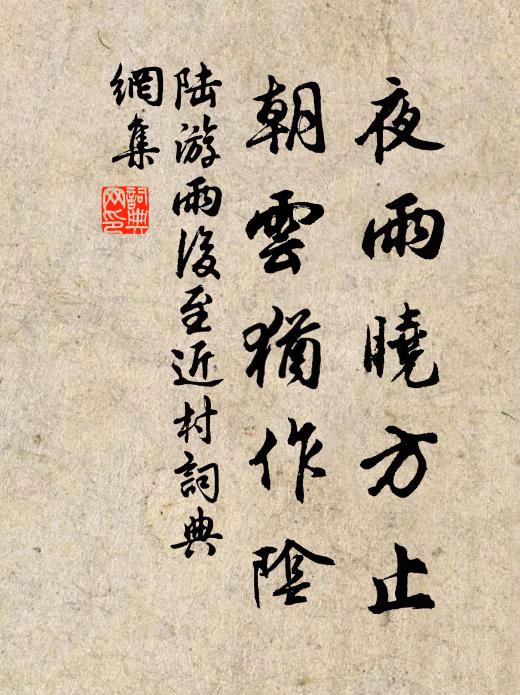 夜雨曉方止
朝雲猶作陰
陆游雨後至近村詞典
網集
詞典网印